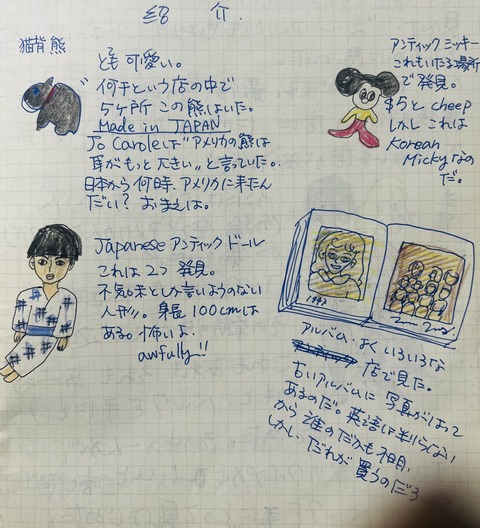 紹 介.
猫背熊
とても可愛い。
何千という店の中で
5ヶ所 この熊はいた。
Made in JAPAN
Jo Caroleは"アメリカの熊は
耳がもっと大きい"と言っていた。
日本から何時、アメリカに来たん
だい? おまえは。
アンティック ミッキー
これもいたる場所
で発見。
$5と cheep
しかし これは
Korean
Mickyなの
だ。
Japanese アンティックドール
これは2つ発見。
不気味としか言いようのない
人形。身長 100cmは
ある。怖いよ.
awfully!!
1992
アルバム.よく いろいろな
店で見た。
古いアルバムに 写真がはって
あるのだ。英語は判らない
から 誰のだかも不明.
しかし、だれが 買うのだろ